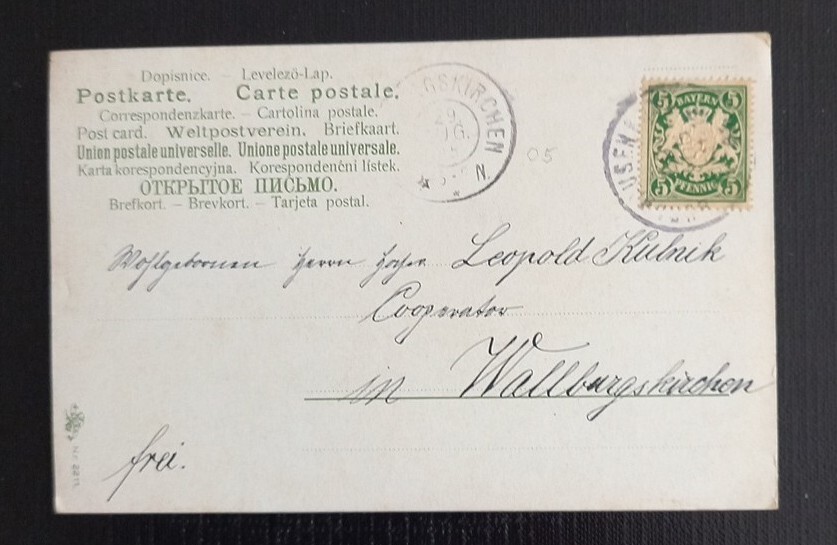 Dopisnice. – Levelező-Lap.
Postkarte. Carte postale.
Correspondenzkarte. – Cartolina postale.
Post card. Weltpostverein. Briefkaart.
Union postale universelle. Unione postale universale.
Karta korespondencyjna. Korespondenční lístek.
ОТКРЫТОЕ ПИСЬМО.
Brefkort. – Brevkort. – Tarjeta postal.
GSKIRCHEN
29.
N.
05
5 BAYERN 5
5 PFENNIG 5
Wohlgebornen Herrn Leopold Kulnik
Cooperator
in Wallburgskirchen
frei.
Nr. 2211.